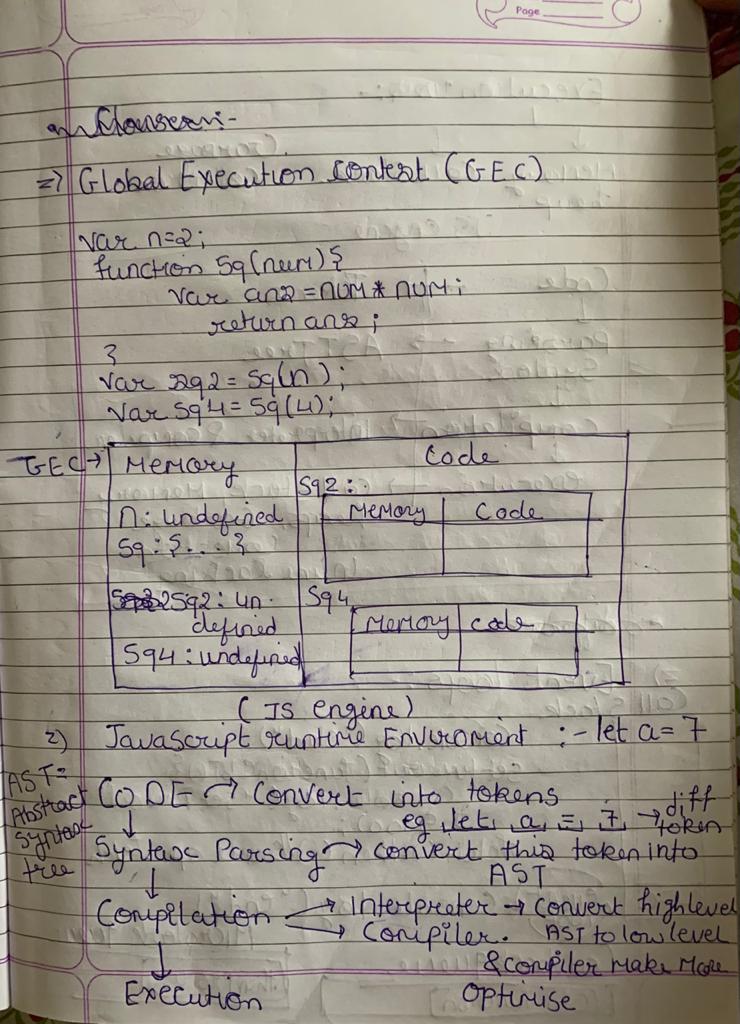 Page
=> Global Execution Context (GEC)
var n=2;
function Sq(num){
var ans = num * num;
return ans;
}
var sq2 = Sq(n);
var sq4 = Sq(4);
GEC→ Memory Code
n: undefined
Sq: {...}
Sq2: un
defined
Sq4: undefined
Sq2:
Memory Code
Sq4
Memory code
(JS engine)
2) Javascript runtime Enviroment :- let a = 7
AST=
Abstract
Syntax
tree
CODE → Convert into tokens
eg let, a, =, 7, → diff
token
Syntax Parsing → convert this token into
AST
Compilation → Interpreter → Convert high level
→ Compiler. AST to low level
& compiler make more
Optimise
Execution